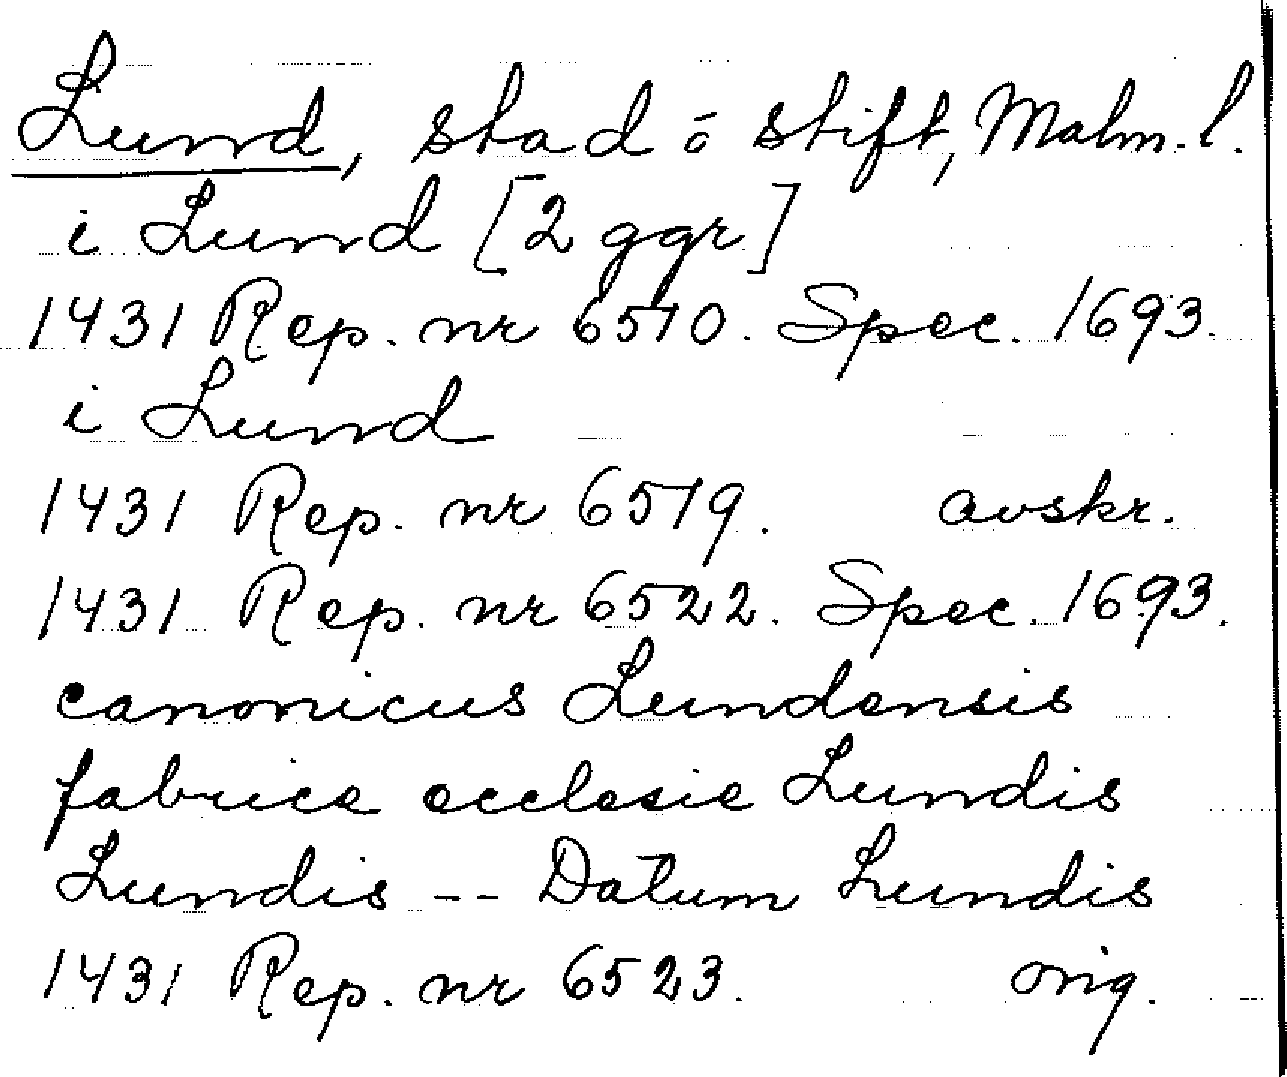 Lund, stad o stift, Malm. l.
i Lund [2 ggr]
1431 Rep. nr 6510. Spec. 1693.
i Lund
1431 Rep. nr 6519. avskr.
1431 Rep. nr 6522. Spec. 1693.
canonicus Lundensis
fabrice ecclesie Lundis
Lundis -- Datum Lundis
1431 Rep. nr 6523. orig.